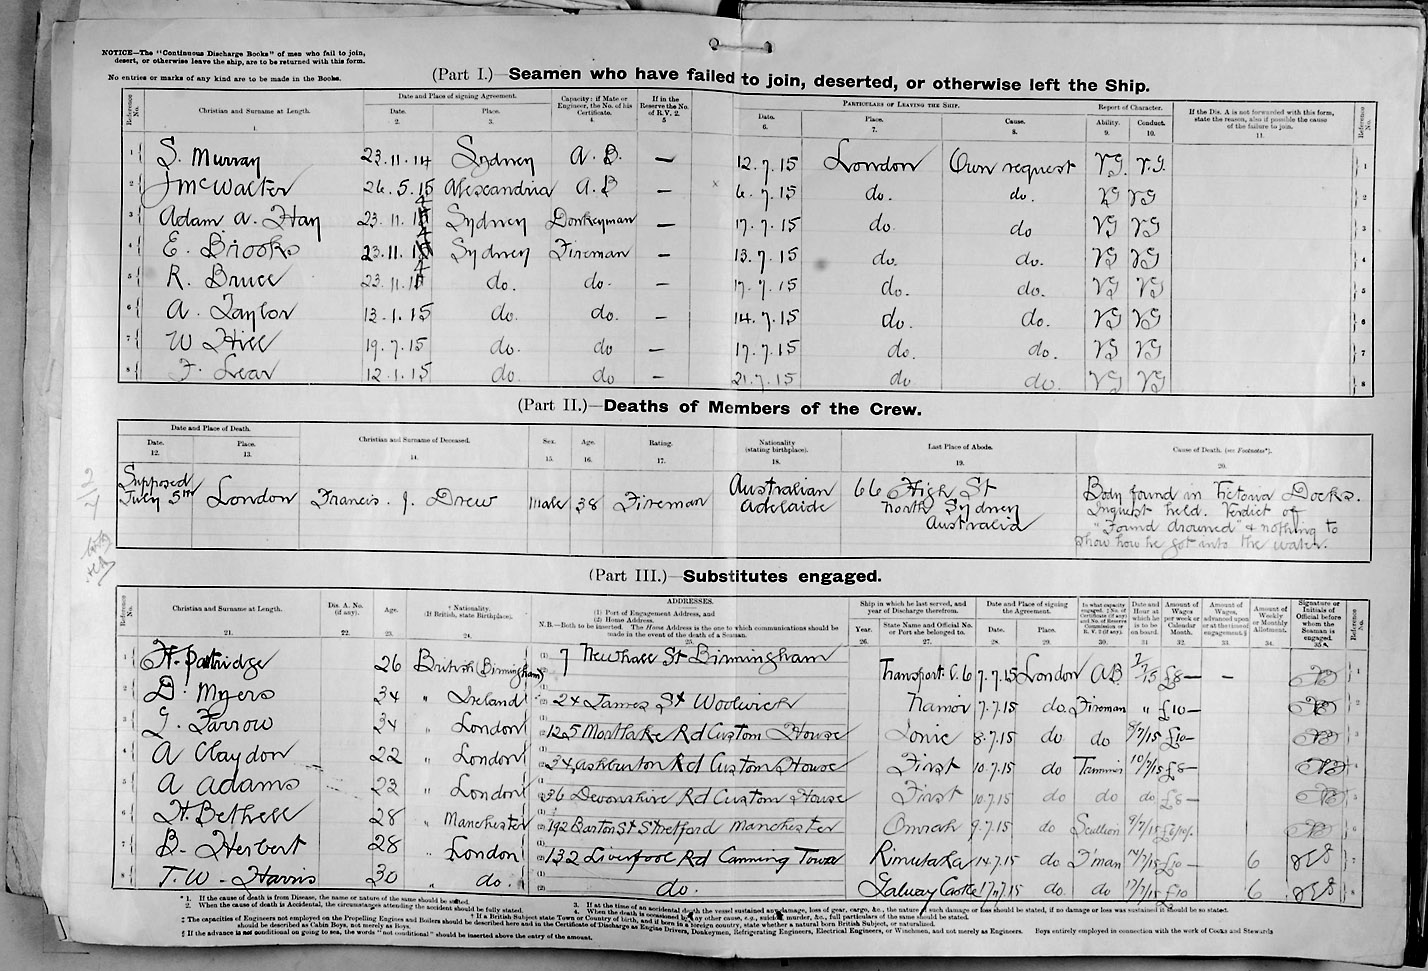 NOTICE—The "Continuous Discharge Books" of men who fail to join,
desert, or otherwise leave the ship, are to be returned with this form.
No entries or marks of any kind are to be made in the Books.
(Part I.)—Seamen who have failed to join, deserted, or otherwise left the Ship.
Reference No. Christian and Surname at Length. 1. Date and Place of signing Agreement. Date. 2. Place. 3. Capacity: if Mate or Engineer, the No. of his Certificate. 4. If in the Reserve the No. of R.V. 2. 5 Particulars of Leaving the Ship. Date. 6. Place. 7. Cause. 8. Report of Character. Ability. 9. Conduct. 10. If the Dis. A is not forwarded with this form, state the reason, also if possible the cause of the failure to join. 11. Reference No.
1 S. Murray 23.11.14 Sydney A.B. — 12.7.15 London Own request VG. V.G. 1
2 J McWalter 26.5.15 Alexandria A.B — 6.7.15 do. do. VG VG 2
3 Adam A. Hay 23.11.14 Sydney Donkeyman — 17.7.15 do. do VG VG 3
4 E. Brooks 23.11.14 Sydney Fireman — 13.7.15 do. do. VG VG 4
5 R. Bruce 23.11.14 do. do. — 17.7.15 do. do. VG VG 5
6 A. Taylor 12.1.15 do. do. — 14.7.15 do. do. VG VG 6
7 W Hill 19.7.15 do. do — 17.7.15 do. do. VG VG 7
8 F. Lear 12.1.15 do. do — 21.7.15 do do. VG VG 8
(Part II.)—Deaths of Members of the Crew.
Date and Place of Death. Date. 12. Place. 13. Christian and Surname of Deceased. 14. Sex. 15. Age. 16. Rating. 17. Nationality (stating birthplace). 18. Last Place of Abode. 19. Cause of Death. (see Footnotes*). 20.
Supposed July 5th London Francis. J. Drew Male 38 Fireman Australian Adelaide 66 High St North Sydney Australia Body found in Victoria Docks.
Inquest held. Verdict of
"Found drowned" & nothing to
show how he got into the water.
(Part III.)—Substitutes engaged.
Reference No. Christian and Surname at Length. 21. Dis. A. No. (if any). 22. Age. 23. † Nationality. (If British, state Birthplace). 24. ADDRESSES. (1) Port of Engagement Address, and (2) Home Address. N.B.—Both to be inserted. The Home Address is the one to which communications should be made in the event of the death of a Seaman. 25. Ship in which he last served, and year of Discharge therefrom. Year. 26. State Name and Official No. or Port she belonged to. 27. Date and Place of signing the Agreement. Date. 28. Place. 29. In what capacity engaged. 30. Date and Hour at which he is to be on board. 31. Amount of Wages per week or Calendar Month. 32. Amount of Wages advanced upon or at the time of engagement. 33. Amount of Weekly or Monthly Allotment. 34. Signature or Initials of Official before whom the Seaman is engaged. 35. Reference No.
1 H. Partridge 26 British (Birmingham) 7 Newhall St Birmingham Transport. C.6 7.7.15 London AB. 7/7/15 £8— — 1
2 D. Myers 34 " Ireland 24 James St Woolwich Namor 7.7.15 do. Fireman " £10— 2
3 G. Farrow 34 " London 125 Mortlake Rd Custom House Ionic 8.7.15 do do 8/7/15 £10— 3
4 A Claydon 22 " London 34 Ashburton Rd Custom House First 10.7.15 do Trimmer 10/7/15 £8— 4
5 A Adams 23 " London 36 Devonshire Rd Custom House First 10.7.15 do do do £8— 5
6 H. Bethell 28 " Manchester 192 Barton St Stretford Manchester Omrah 9.7.15 do Scullion 9/7/15 6
7 B. Herbert 28 " London 132 Liverpool Rd Canning Town Rimutaka 14.7.15 do F'man 14/7/15 £10— 6 7
8 T. W. Harris 30 " do. do. Galway Castle 17.7.15 do. do 17/7/15 £10 6 8
* 1. If the cause of death is from Disease, the name or nature of the same should be stated.
2. When the cause of death is Accidental, the circumstances attending the accident should be fully stated.
3. If at the time of an accidental death the vessel sustained any damage, loss of gear, cargo, &c., the nature of such damage or loss should be stated, if no damage or loss was sustained it should be so stated.
4. When the death is occasioned by any other cause, e.g., suicide, murder, &c., full particulars of the same should be stated.
† If a British Subject state Town or Country of birth, and if born in a foreign country, state whether a natural born British Subject, or naturalized.
‡ The capacities of Engineers not employed on the Propelling Engines and Boilers should be described here and in the Certificate of Discharge as Engine Drivers, Donkeymen, Refrigerating Engineers, Electrical Engineers, or Winchmen, and not merely as Engineers. Boys entirely employed in connection with the work of Cooks and Stewards
should be described as Cabin Boys, not merely as Boys.
§ If the advance is not conditional on going to sea, the words "not conditional" should be inserted above the entry of the amount.